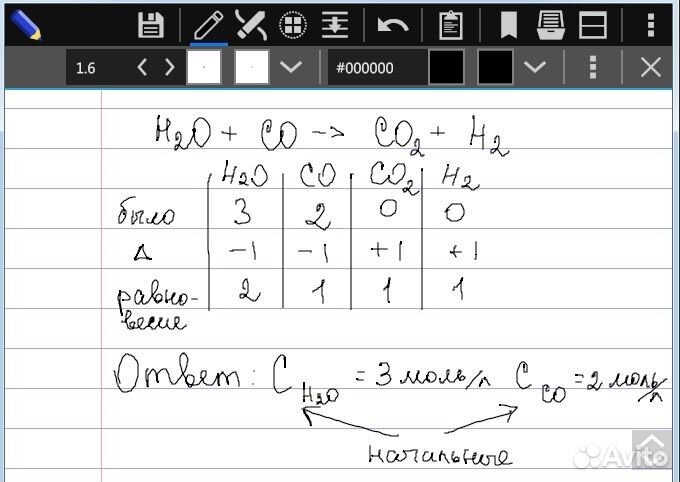 1.6 #000000
H₂O + CO → CO₂ + H₂
H₂O CO CO₂ H₂
было 3 2 0 0
Δ -1 -1 +1 +1
равно- 2 1 1 1
весие
Ответ: C H₂O = 3 моль/л C CO = 2 моль/л
начальные
Avito